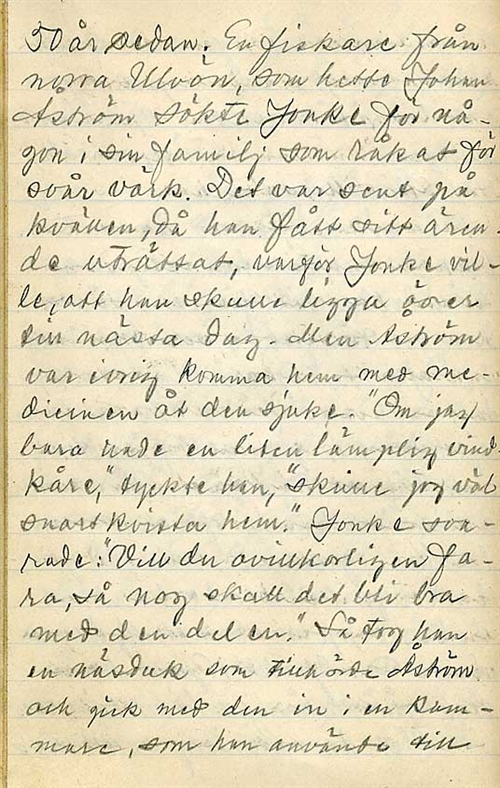 50 år sedan. En fiskare från
norra Ulvön, som hette Johan
Åström sökte Jonke för nå-
gon i sin familj som råkat för
svår värk. Det var sent på
kvällen, då han fått sitt ären-
de uträttat, varför Jonke vil-
le, att han skulle ligga över
till nästa dag. Men Åström
var ivrig komma hem med me-
dicinen åt den sjuke. "Om jag
bara hade en liten lämplig vind-
kåre," tyckte han, "skulle jag väl
snart kvista hem." Jonke sva-
rade: "Vill du ovillkorligen fa-
ra, så nog skall det bli bra
med den delen." Så tog han
en näsduk som tillhörde Åström
och gick med den in i en kam-
mare, som han använde till